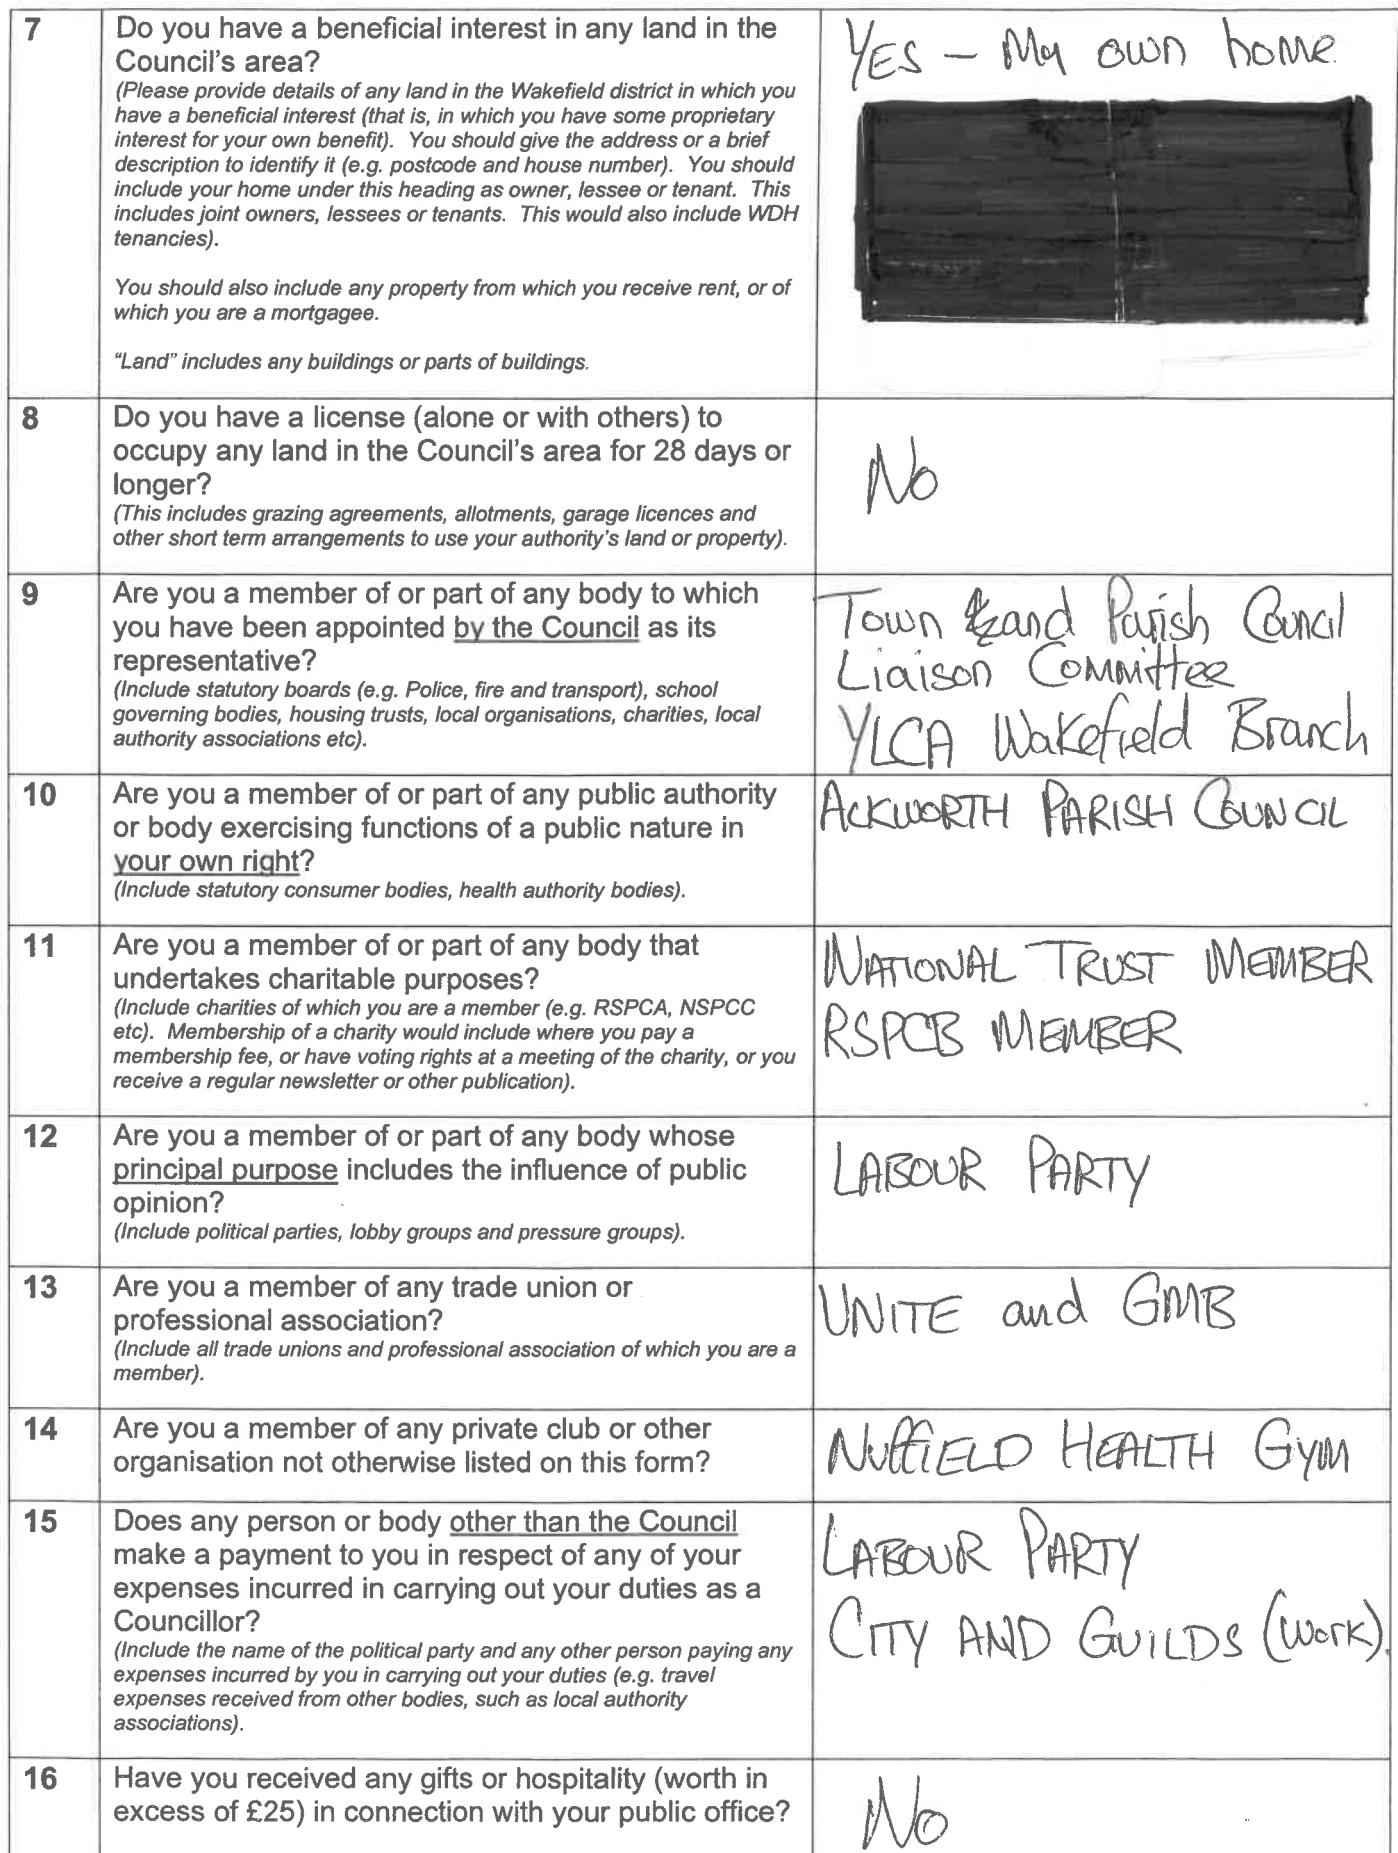 7
Do you have a beneficial interest in any land in the
Council's area?
(Please provide details of any land in the Wakefield district in which you
have a beneficial interest (that is, in which you have some proprietary
interest for your own benefit). You should give the address or a brief
description to identify it (e.g. postcode and house number). You should
include your home under this heading as owner, lessee or tenant. This
includes joint owners, lessees or tenants. This would also include WDH
tenancies).
You should also include any property from which you receive rent, or of
which you are a mortgagee.
"Land" includes any buildings or parts of buildings.
YES – My own home.
8
Do you have a license (alone or with others) to
occupy any land in the Council's area for 28 days or
longer?
(This includes grazing agreements, allotments, garage licences and
other short term arrangements to use your authority's land or property).
No
9
Are you a member of or part of any body to which
you have been appointed by the Council as its
representative?
(Include statutory boards (e.g. Police, fire and transport), school
governing bodies, housing trusts, local organisations, charities, local
authority associations etc).
Town and Parish Council
Liaison Committee
YLCA Wakefield Branch
10
Are you a member of or part of any public authority
or body exercising functions of a public nature in
your own right?
(Include statutory consumer bodies, health authority bodies).
ACKWORTH PARISH COUNCIL
11
Are you a member of or part of any body that
undertakes charitable purposes?
(Include charities of which you are a member (e.g. RSPCA, NSPCC
etc). Membership of a charity would include where you pay a
membership fee, or have voting rights at a meeting of the charity, or you
receive a regular newsletter or other publication).
NATIONAL TRUST MEMBER
RSPCB MEMBER
12
Are you a member of or part of any body whose
principal purpose includes the influence of public
opinion?
(Include political parties, lobby groups and pressure groups).
LABOUR PARTY
13
Are you a member of any trade union or
professional association?
(Include all trade unions and professional association of which you are a
member).
UNITE and GMB
14
Are you a member of any private club or other
organisation not otherwise listed on this form?
NUffiELD HEALTH GYM
15
Does any person or body other than the Council
make a payment to you in respect of any of your
expenses incurred in carrying out your duties as a
Councillor?
(Include the name of the political party and any other person paying any
expenses incurred by you in carrying out your duties (e.g. travel
expenses received from other bodies, such as local authority
associations).
LABOUR PARTY
CITY AND GUILDS (Work).
16
Have you received any gifts or hospitality (worth in
excess of £25) in connection with your public office?
No